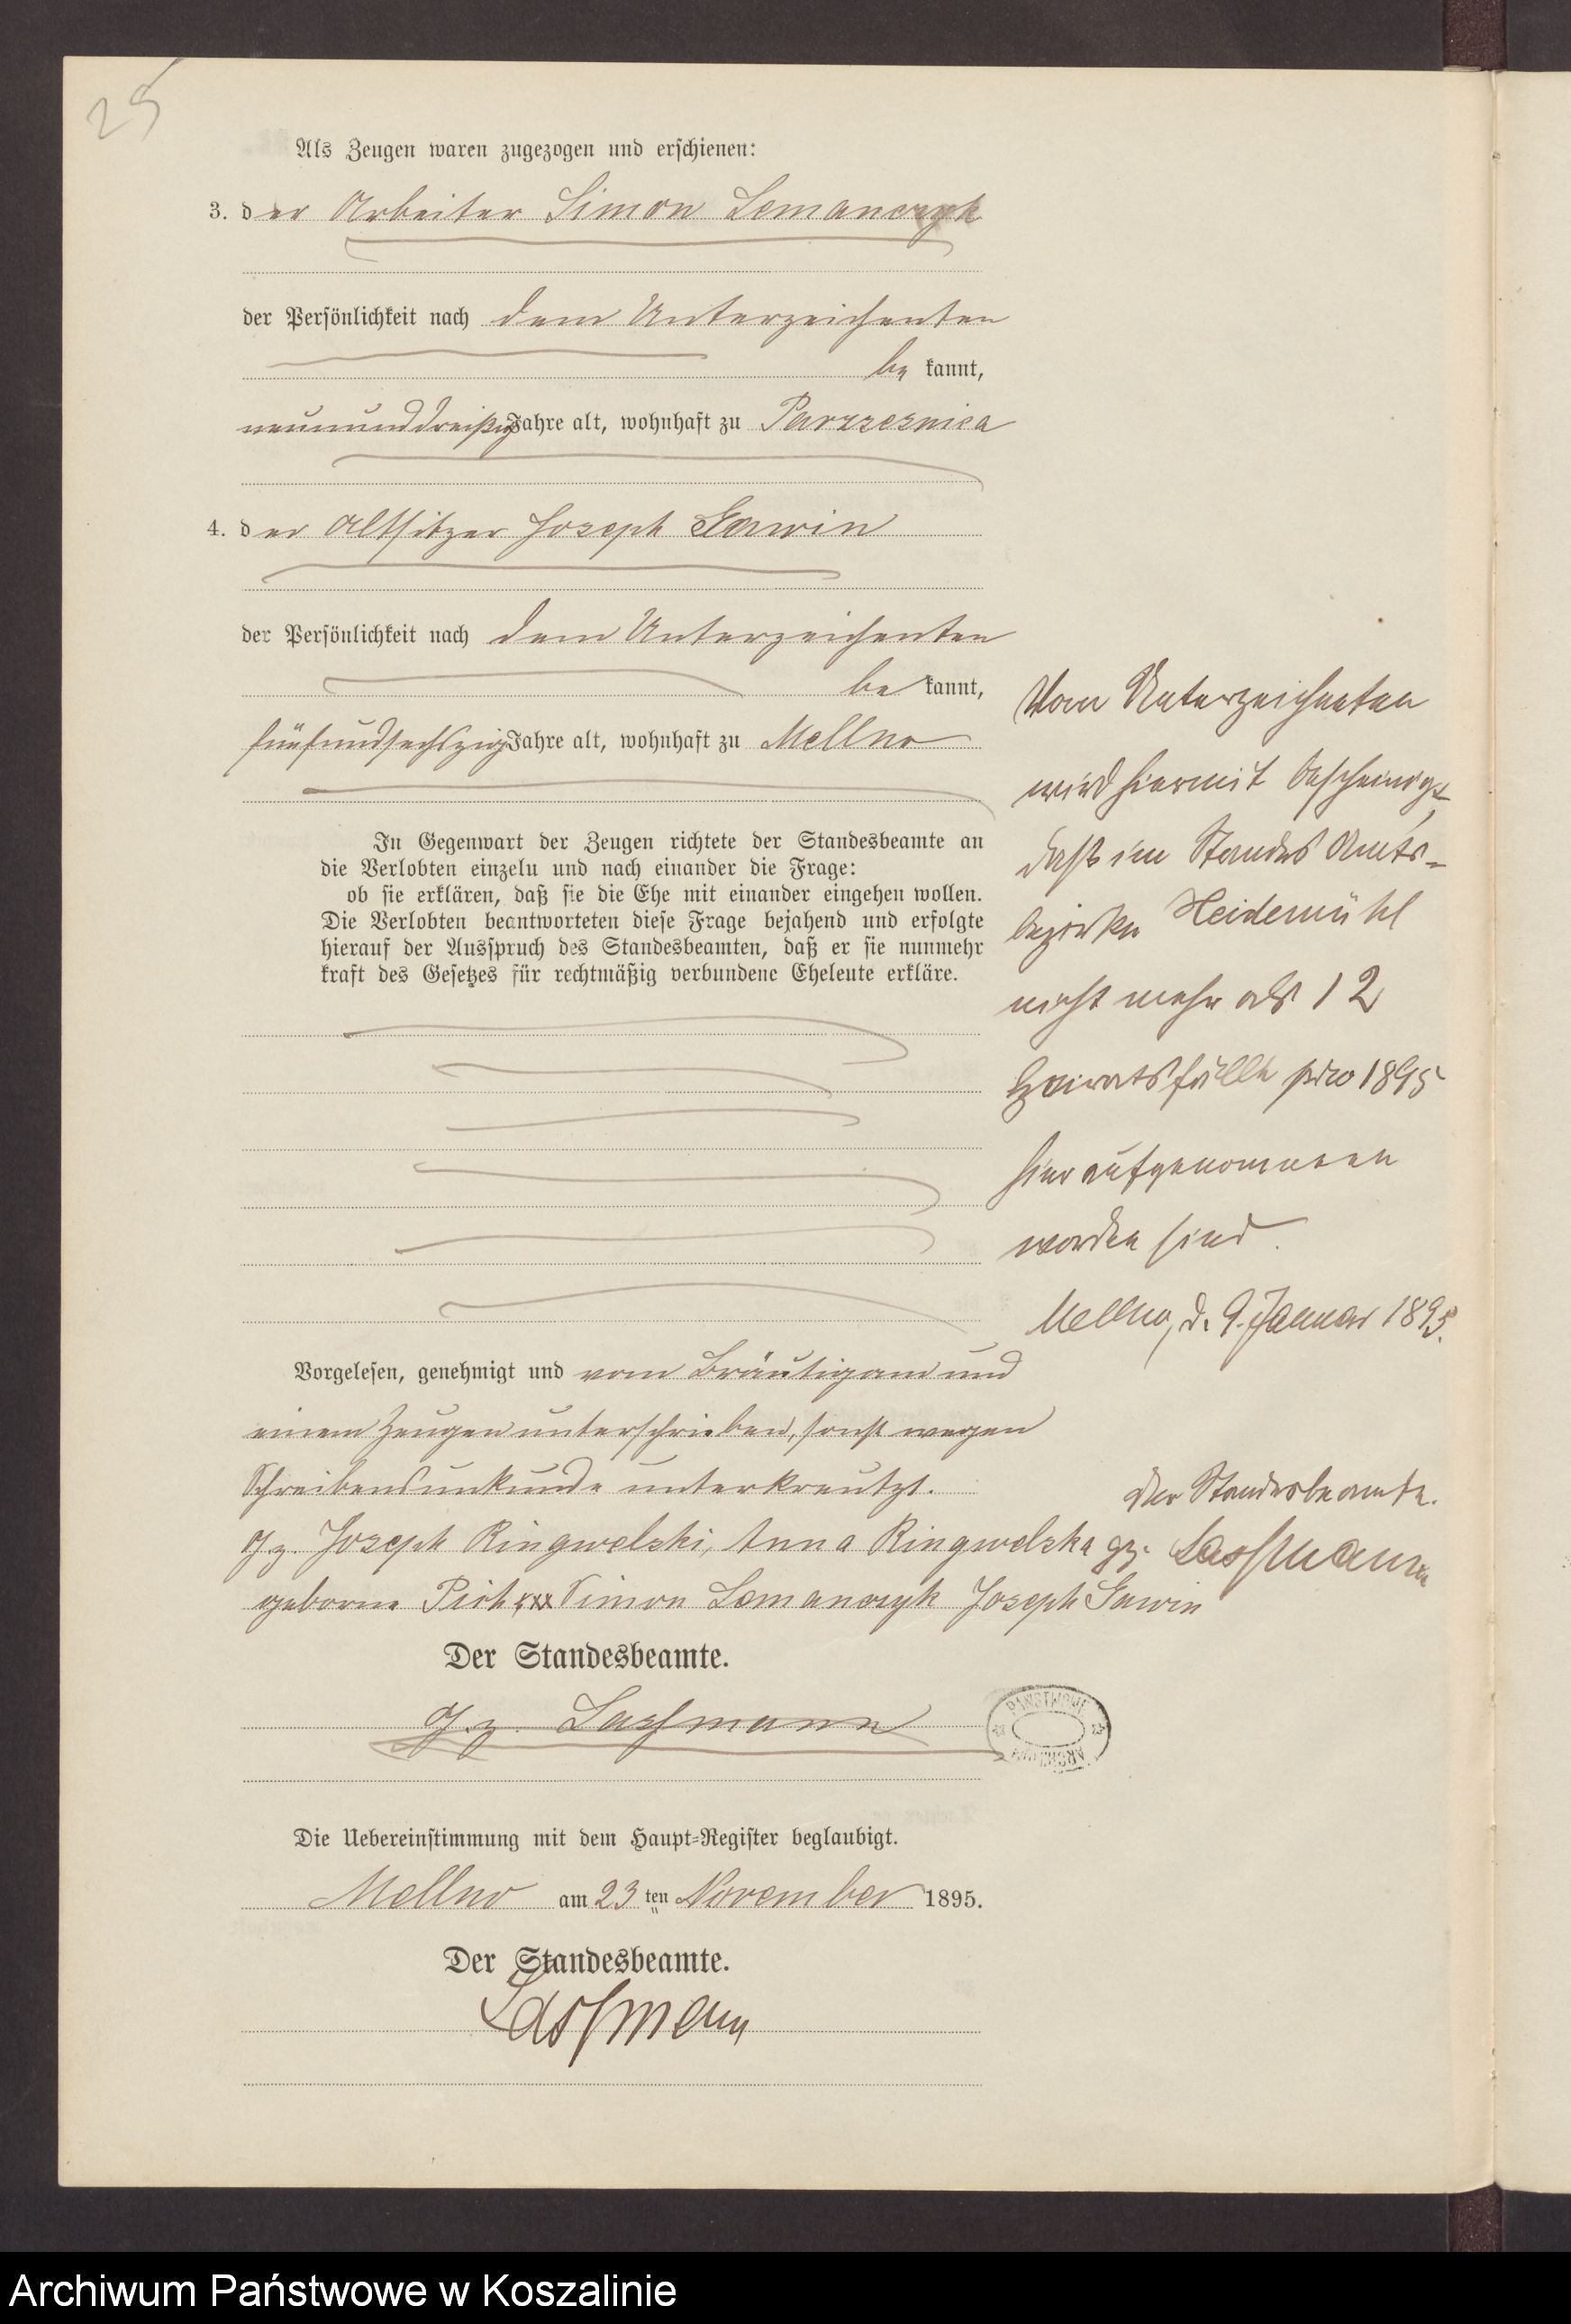 25
Als Zeugen waren zugezogen und erschienen:
3. der Arbeiter Simon Lemanczyk
der Persönlichkeit nach dem Unterzeichenten
be kannt,
neununddreißig Jahre alt, wohnhaft zu Parzzesnica
4. der Altsitzer Joseph Gawin
der Persönlichkeit nach dem Unterzeichenten
be kannt,
fünfundsechszig Jahre alt, wohnhaft zu Mellno
In Gegenwart der Zeugen richtete der Standesbeamte an
die Verlobten einzeln und nach einander die Frage:
ob sie erklären, daß sie die Ehe mit einander eingehen wollen.
Die Verlobten beantworteten diese Frage bejahend und erfolgte
hierauf der Ausspruch des Standesbeamten, daß er sie nunmehr
kraft des Gesetzes für rechtmäßig verbundene Eheleute erkläre.
Vorgelesen, genehmigt und vom Bräutigam und
einem Zeugen unterschrieben, sonst wegen
Schreibensunkunde unterkreutzt.
gz. Joseph Ringwelski, Anna Ringwelska
geborne Pick xxx Simon Lemanczyk Joseph Gawin
Der Standesbeamte.
gz. Lassmann
Die Uebereinstimmung mit dem Haupt-Register beglaubigt.
Mellno am 23 ten November 1895.
Der Standesbeamte.
Lassmann
Vom Unterzeichneten
wird hiermit bescheinigt,
daß im Standes Amts-
bezirke Heidemühl
nicht mehr als 12
Heiratsfälle pro 1895
hier aufgenommen
worden sind.
Mellno, d. 9. Januar 1895.
Der Standesbeamte.
gz. Lassmann
PAŃSTWOWE
ARCHIWUM
Archiwum Państwowe w Koszalinie